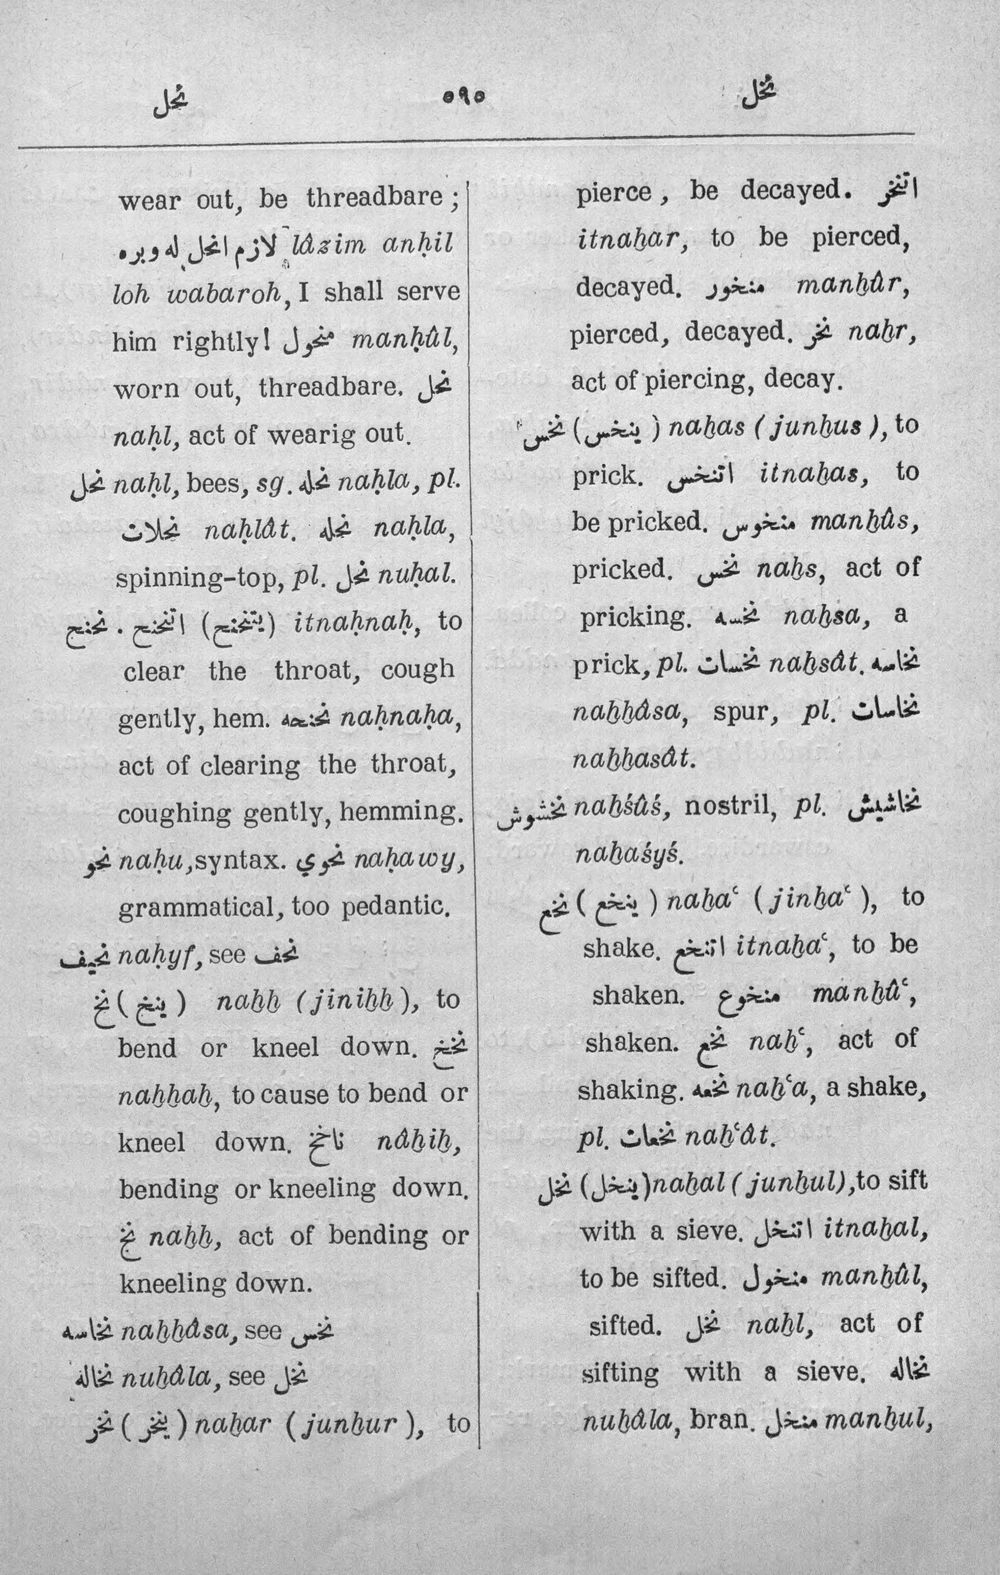 نحل
٥٩٥
نخل
wear out, be threadbare;
لازم انحل له وبره lâzim anḥil
loh wabaroh, I shall serve
him rightly! منحول manḥûl,
worn out, threadbare. نحل
naḥl, act of wearig out.
نحل naḥl, bees, sg. نحله naḥla, pl.
نحلات naḥlât. نحله naḥla,
spinning-top, pl. نحل nuḥal.
نحنح . اتنحنح (يتنحنح) itnaḥnaḥ, to
clear the throat, cough
gently, hem. نحنحه naḥnaḥa,
act of clearing the throat,
coughing gently, hemming.
نحو naḥu, syntax. نحوي naḥawy,
grammatical, too pedantic.
نحيف naḥyf, see نحف
نخ (ينخ) naḫḫ (jiniḫḫ), to
bend or kneel down. نخخ
naḫḫaḫ, to cause to bend or
kneel down. ناخخ nâḫiḫ,
bending or kneeling down.
نخ naḫḫ, act of bending or
kneeling down.
نخاسه naḫḫâsa, see نخس
نخاله nuḫâla, see نخل
نخر (ينخر) naḫar (junḫur), to
pierce, be decayed. اتنخر
itnaḫar, to be pierced,
decayed. منخور manḫûr,
pierced, decayed. نخر naḫr,
act of piercing, decay.
نخس (ينخس) naḫas (junḫus), to
prick. اتنخس itnaḫas, to
be pricked. منخوس manḫûs,
pricked. نخس naḫs, act of
pricking. نخسه naḫsa, a
prick, pl. نخسات naḫsât. نخاسه
naḫḫâsa, spur, pl. نخاسات
naḫḫasât.
نخشوش naḫśûś, nostril, pl. نخاشيش
naḫaśyś.
نخع (ينخع) naḫaʿ (jinḫaʿ), to
shake. اتنخع itnaḫaʿ, to be
shaken. منخوع manḫûʿ,
shaken. نخع naḫʿ, act of
shaking. نخعه naḫʿa, a shake,
pl. نخعات naḫʿât.
نخل (ينخل) naḫal (junḫul), to sift
with a sieve. اتنخل itnaḫal,
to be sifted. منخول manḫûl,
sifted. نخل naḫl, act of
sifting with a sieve. نخاله
nuḫâla, bran. منخل manḫul,